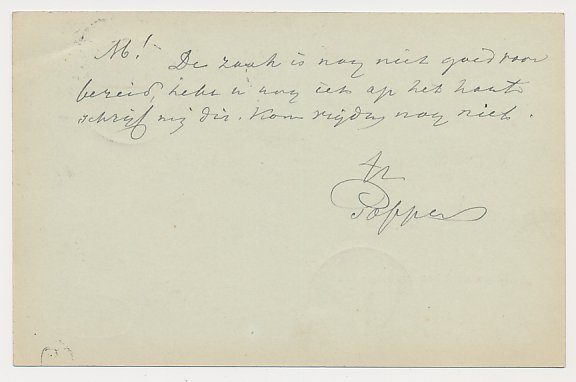 M! De zaak is nog niet goed voor
bereid, hebt u nog iets op het hart
schrijf mij dit. Kom vrijdag nog niet.
Poppes